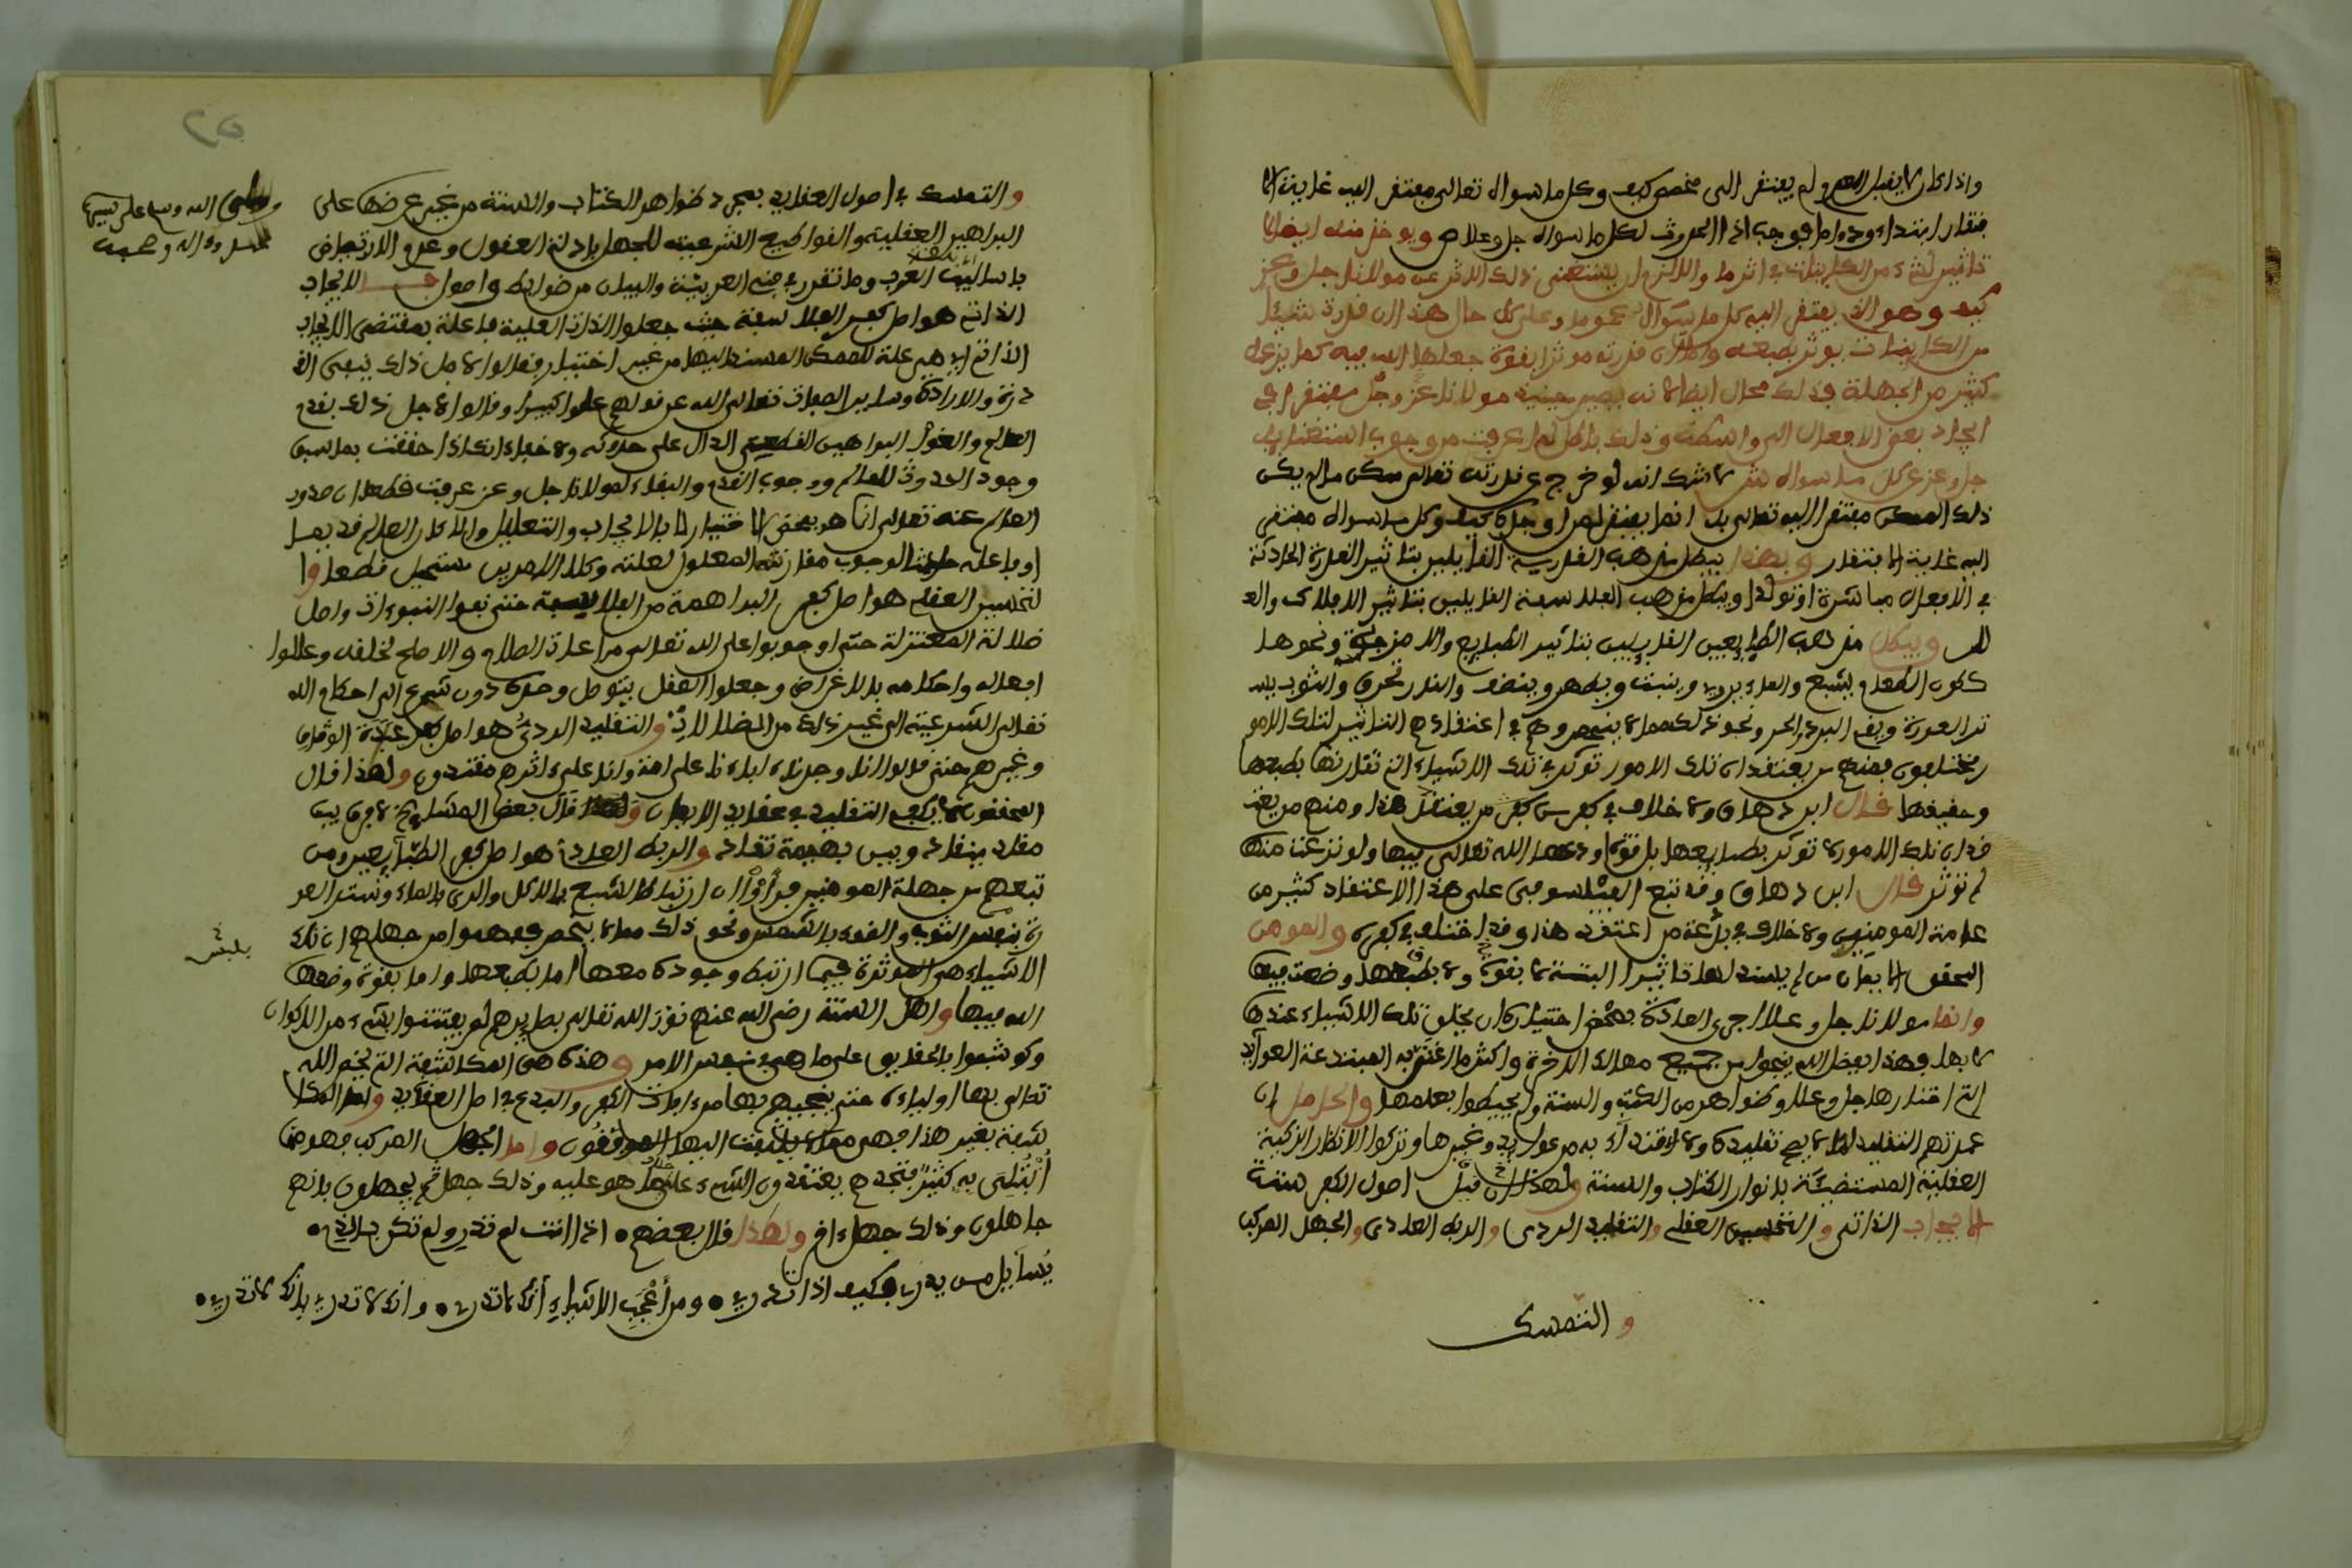 واذا كان لا يقبل العدم ولم يفتقر الى مخصص كيف وكل ما سواه تعالى مفتقر اليه غاية الا
فتقار ابتداء ودواما فوجب اذا الحدوث لكل ما سواه جل وعلا ص ويوخذ منه ايضا الا
تاثير لشيء من الكاينات في اثر ما والا لزم ان يستغني ذلك الاثر عن مولانا جل وعز
كيف وهو الذي يفتقر اليه كل ما سواه عموما وعلى كل حال هذا ان قدرت شيئا
من الكاينات يوثر بطبعه واما ان قدرته موثرا بقوة جعلها الله فيه كما يزعمه
كثير من الجهلة فذلك محال ايضا لانه يصير حينئذ مولانا عز وجل مفتقرا في
ايجاد بعض الافعال الى واسطة وذلك باطل لما عرفت من وجوب استغنايه
جل وعز عن كل ما سواه ش لا شك انه لو خرج عن قدرته تعالى ممكن ما لم يكن
ذلك الممكن مفتقرا اليه تعالى بل انما يفتقر لمن اوجده كيف وكل ما سواه مفتقر
اليه غاية الافتقار وبهذا يبطل مذهب القدرية القايلين بتاثير القدرة الحادثة
في الافعال مباشرة او تولدا ويبطل مذهب الفلاسفة القايلين بتاثير الافلاك والعـ
لل ويبطل مذهب الطبايعيين القايلين بتاثير الطبايع والامزجة ونحوها
ككون الطعام يشبع والماء يروي وينبت ويطهر وينظف والنار تحرق والثوب يسـ
تر العورة ويقي البرد والحر ونحو ذلك مما لا ينحصر وهم في اعتقادهم التاثير لتلك الامور
مختلفون فمنهم من يعتقد ان تلك الامور توثر في تلك الاشياء التي تقارنها بطبعها
وحقيقتها قال ابن دهاق ولا خلاف في كفر من يعتقد هذا ومنهم من يعتـ
قد ان تلك الامور لا توثر بطبايعها بل بقوة اودعها الله تعالى فيها ولو نزعت منها
لم توثر قال ابن دهاق وقد تبع الفيلسوفي على هذا الاعتقاد كثير من
عامة المومنين ولا خلاف في بدعة من اعتقد هذا وقد اختلف في كفره والمومن
المحقق الايمان من لم يسند لها تاثيرا البتة لا بقوة ولا بطبعها وضعت فيها
وانما مولانا جل وعلا اجرى العادة بمحض اختياره ان يخلق تلك الاشياء عندها
لا بها فهذا بفضل الله ينجو من جميع مهالك الاخرة واكثر ما اغتر به المبتدعة العوايد
التي اختارها جل وعلا وظواهر من الكتب والسنة ولم يحيطوا بعلمها والحامل ان
عمدتهم التقليد لما لا يصح تقليده ولا الاقتداء به من عوايد وغيرها وتركوا الانظار الزكية
العقلية المستضيئة بانوار الكتاب والسنة ولهذا قيل اصول الكفر ستة
الايجاب الذاتي والتحسين العقلي والتقليد الردي والربط العادي والجهل المركب
والتمسك
والتمسك في اصول العقايد بمجرد ظواهر الكتاب والسنة من غير عرضها على
البراهين العقلية والقواطع الشرعية للجهل بادلة العقول وعدم الارتياض
باساليب العرب وما تقرر في فني العربية والبيان من ضوابط واصول فـــالايجاب
الذاتي هو اصل كفر الفلاسفة حيث جعلوا الذات العلية فاعلة بمقتضى الايجاب
الذاتي اي هي علة للممكن المستند اليها من غير اختيار فقالوا لاجل ذلك بنفي القـ
درة والارادة وساير الصفات تعالى الله عن قولهم علوا كبيرا وقالوا لاجل ذلك بقدم
العالم والغوا البراهين القطعي الدال على حدوثه ولا خفاء انك اذا حققت بما سبق
وجود الحدوث للعالم ووجوب القدم والبقاء لمولانا جل وعز عرفت قطعا ان صدور
العالم عنه تعالى انما هو بمحض الاختيار لا بالايجاب والتعليل والا كان العالم قديما
او فاعله حادثا لوجوب مقارنة المعلول لعلته وكلا الامرين مستحيل قطعا وا
لتحسين العقلي هو اصل كفر البراهمة من الفلاسفة حتى نفوا النبوءات واصل
ضلالة المعتزلة حتى اوجبوا على الله تعالى مراعاة الصلاح والاصلح لخلقه وعللوا
افعاله واحكامه بالاغراض وجعلوا العقل يتوصل وحده دون شرع الى احكام الله
تعالى الشرعية الى غير ذلك من الضلالات والتقليد الردي هو اصل كفر عبدة الاوثان
وغيرهم حتى قالوا انا وجدنا ءاباءنا على امة وانا على ءاثرهم مقتدون ولهذا قال
المحققون لا يكفي التقليد في عقايد الايمان قال بعض المشايخ لا فرق بين
مقلد ينقاد وبين بهيمة تقاد والربط العادي هو اصل كفر الطبايعيين ومن
تبعهم من جهلة المومنين فرأوا ان ارتباط الشبع بالاكل والري بالماء وستر العو
رة بلبس الثوب والضوء بالشمس ونحو ذلك مما لا ينحصر ففهموا من جهلهم ان تلك
الاشياء هي الموثرة فيما ارتبط وجوده معها اما بطبعها واما بقوة وضعها
الله فيها واهل السنة رضي الله عنهم نور الله تعالى بصايرهم لم يفتتنوا بشيء من الاكوان
وكوشفوا بالحقايق على ما هي في نفس الامر وهذه هي المكاشفة التي يخص الله
تعالى بها اولياءه حتى ينجيهم بها من ءافات الكفر والبدع في اصل العقايد واما المكا
شفة بغير هذا فهي مما لا يلتفت اليها الموفقون واما الجهل المركب فهو مما
ابتلي به كثير فتجدهم يعتقدون الشيء على خلاف ما هو عليه وذلك جهل ثم يجهلون بانهم
جاهلون وذلك جهل ءاخر ولهذا قال بعضهم • اذا انت لم تدر ولم تكن بالذي •
يسايل من يدري فكيف اذا تدري • ومن اعجب الاشياء انك لا تدري • وانك لا تدري بانك لا تدري •
وصلى الله وسلم على نبينا
محمد وءاله وصحبه
بلبس